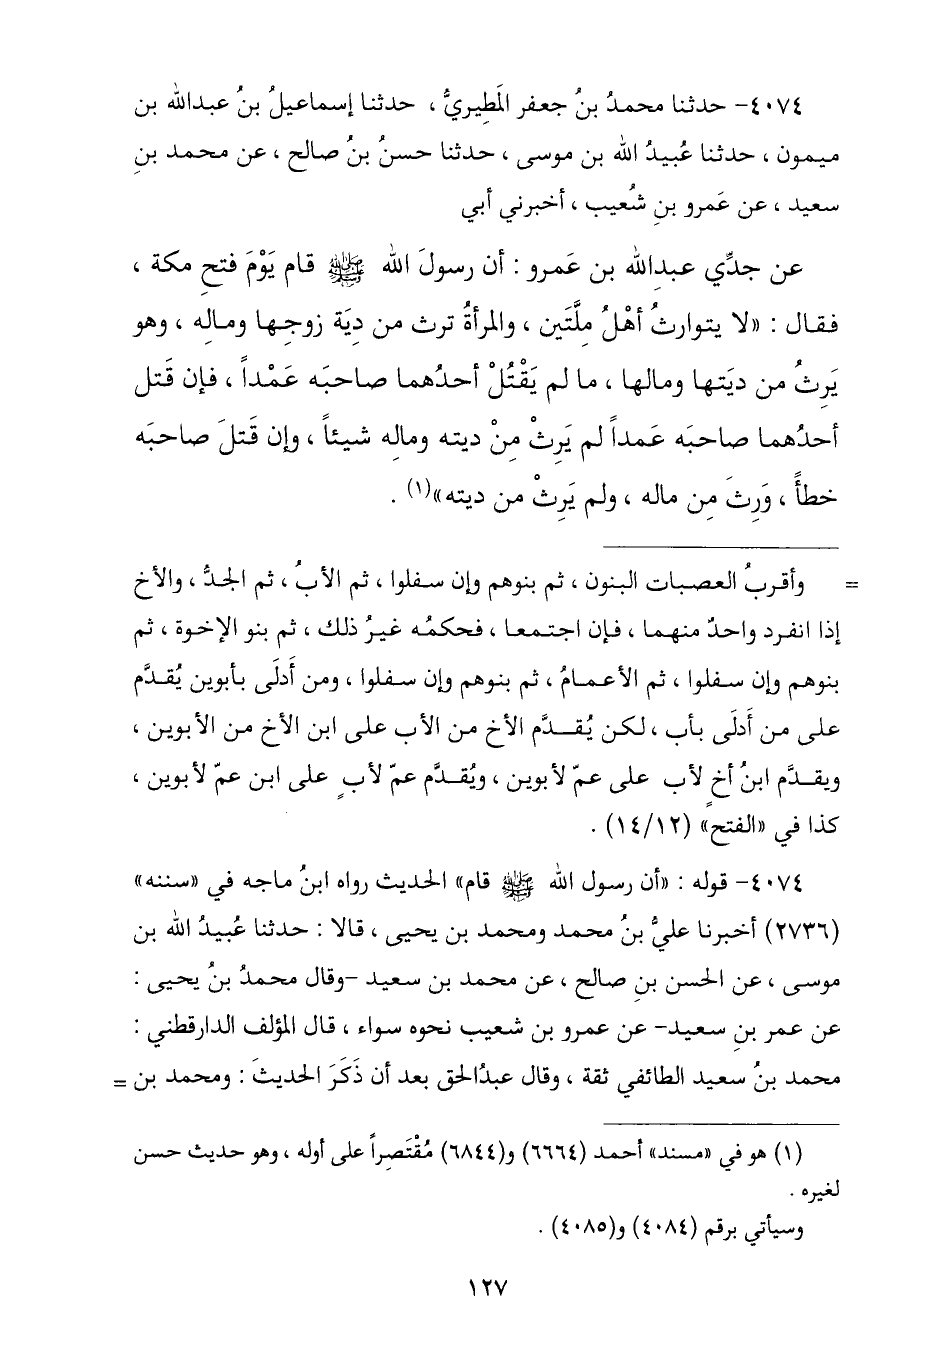 ٤٠٧٤- حدثنا محمدُ بنُ جعفر المَطِيريُّ ، حدثنا إسماعيلُ بنُ عبدالله بن
ميمون ، حدثنا عُبيدُ الله بن موسى ، حدثنا حسنُ بنُ صالح ، عن محمد بنِ
سعيد ، عن عَمرو بنِ شُعيب ، أخبرني أبي
عن جدِّي عبدِالله بن عَمرو : أن رسولَ الله ﷺ قام يَوْمَ فتحِ مكة ،
فقال : «لا يتوارثُ أهْلُ مِلَّتَين ، والمرأةُ ترث من ديَة زوجِها ومالِه ، وهو
يَرِثُ من ديَتها ومالها ، ما لم يَقْتُلْ أحدُهما صاحبَه عَمْداً ، فإن قَتل
أحدُهما صاحبَه عَمداً لم يَرِثْ مِنْ ديته ومالِه شيئاً ، وإن قَتلَ صاحبَه
خطأً ، وَرِثَ مِن ماله ، ولم يَرِثْ من ديته»(١) .
= وأقربُ العصبات البنون ، ثم بنوهم وإن سفلوا ، ثم الأبُ ، ثم الجدُّ ، والأخ
إذا انفرد واحدٌ منهما ، فإن اجتمعا ، فحكمُه غيرُ ذلك ، ثم بنو الإخوة ، ثم
بنوهم وإن سفلوا ، ثم الأعمامُ ، ثم بنوهم وإن سفلوا ، ومن أَدلَى بأبوين يُقدَّم
على من أَدلَى بأب ، لكن يُقدَّم الأخ من الأب على ابن الأخ من الأبوين ،
ويقدَّم ابنُ أخٍ لأب على عمّ لأبوين ، ويُقدَّم عمّ لأبٍ على ابن عمّ لأبوين ،
كذا في «الفتح» (١٤/١٢) .
٤٠٧٤- قوله : «أن رسول الله ﷺ قام» الحديث رواه ابنُ ماجه في «سننه»
(٢٧٣٦) أخبرنا عليُّ بنُ محمد ومحمد بن يحيى ، قالا : حدثنا عُبيدُ الله بن
موسى ، عن الحسن بنِ صالح ، عن محمد بن سعيد -وقال محمدُ بنُ يحيى :
عن عمر بنِ سعيد- عن عمرو بن شعيب نحوه سواء ، قال المؤلف الدارقطني :
محمد بنُ سعيد الطائفي ثقة ، وقال عبدُالحق بعد أن ذَكَرَ الحديثَ : ومحمد بن =
(١) هو في «مسند» أحمد (٦٦٦٤) و(٦٨٤٤) مُقْتَصِراً على أوله ، وهو حديث حسن
لغيره .
وسيأتي برقم (٤٠٨٤) و(٤٠٨٥) .
١٢٧